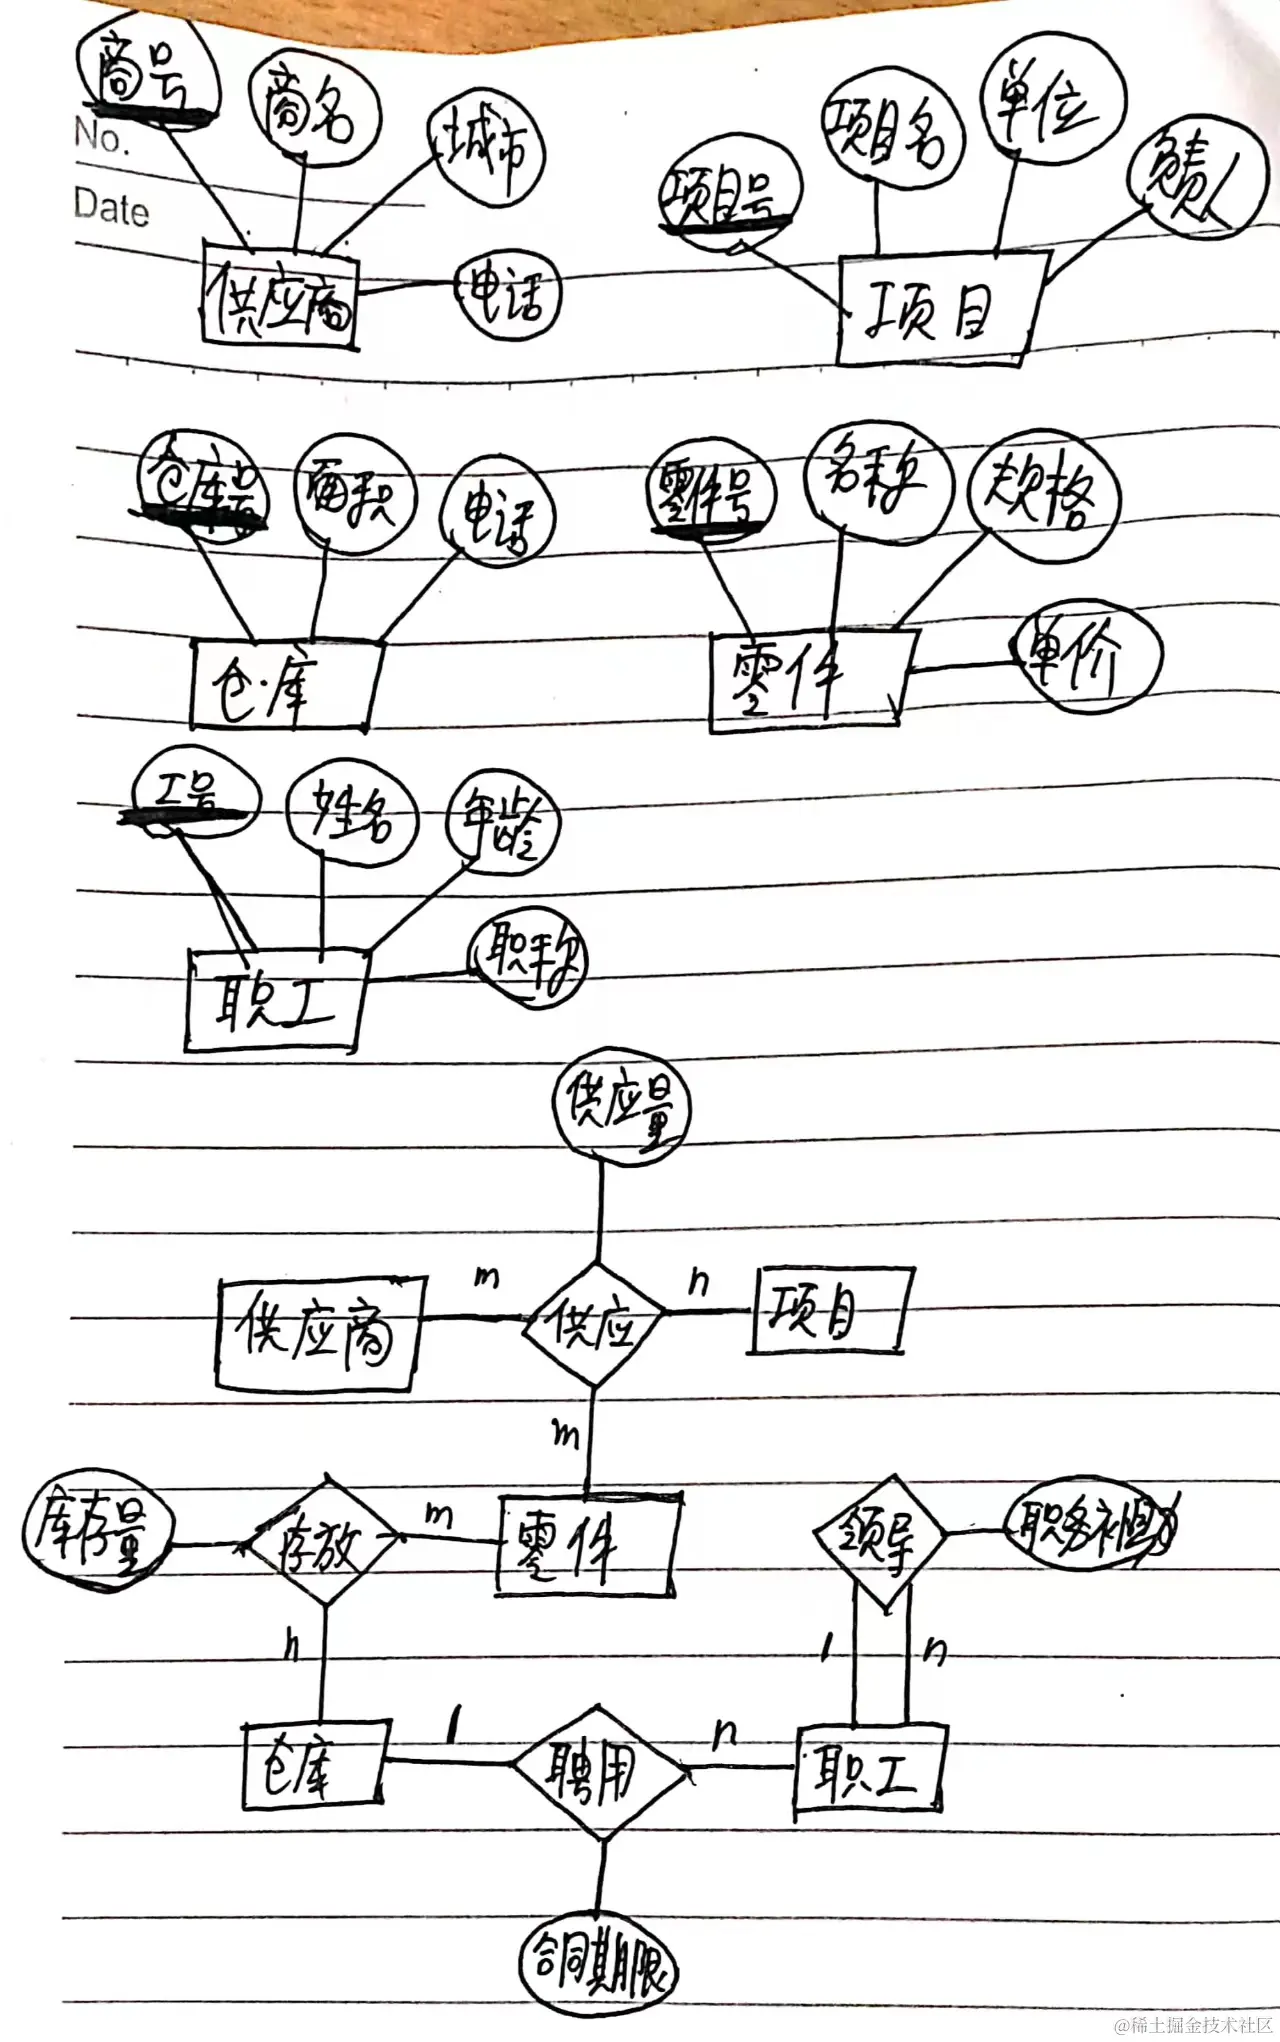 商号
商名
城市
No.
Date
供应商
电话
项目号
项目名
单位
负责人
项目
仓库号
面积
电话
仓库
零件号
名称
规格
单价
零件
工号
姓名
年龄
职称
职工
供应量
供应商
m
供应
n
项目
m
库存量
存放
m
零件
领导
职务补助
n
1
n
仓库
1
聘用
n
职工
合同期限
@稀土掘金技术社区